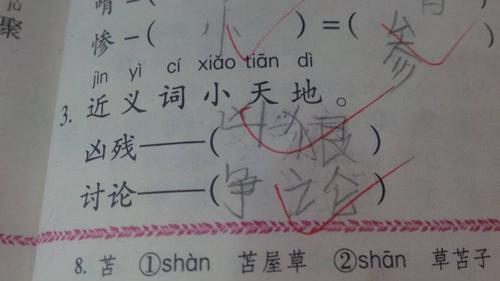 聚
惨-(小)=(参)
jìn yì cí xiǎo tiān dì
3. 近义词小天地。
凶残——(凶狠)
讨论——(争论)
8. 苫 ①shàn 苫屋草 ②shān 草苫子